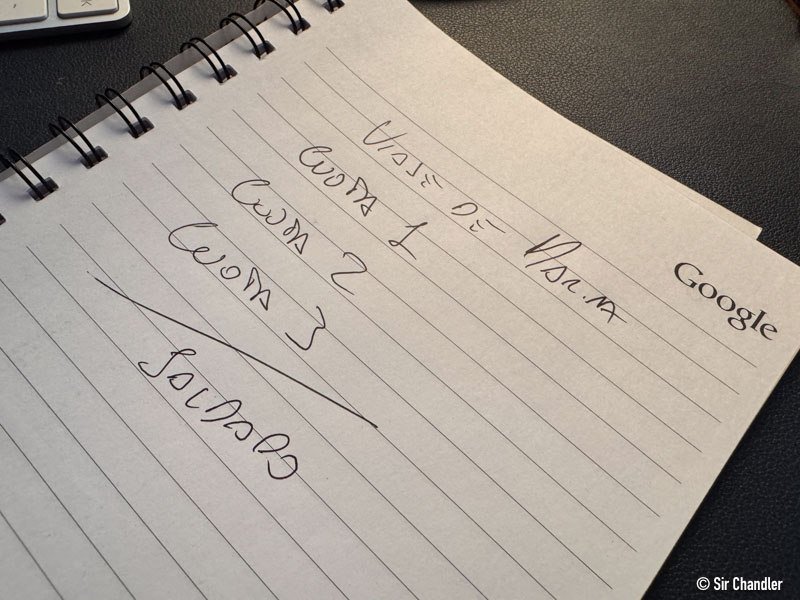 VIAJE DE MARIA
CUOTA 1
CUOTA 2
CUOTA 3
SALDADO
Google
© Sir Chandler